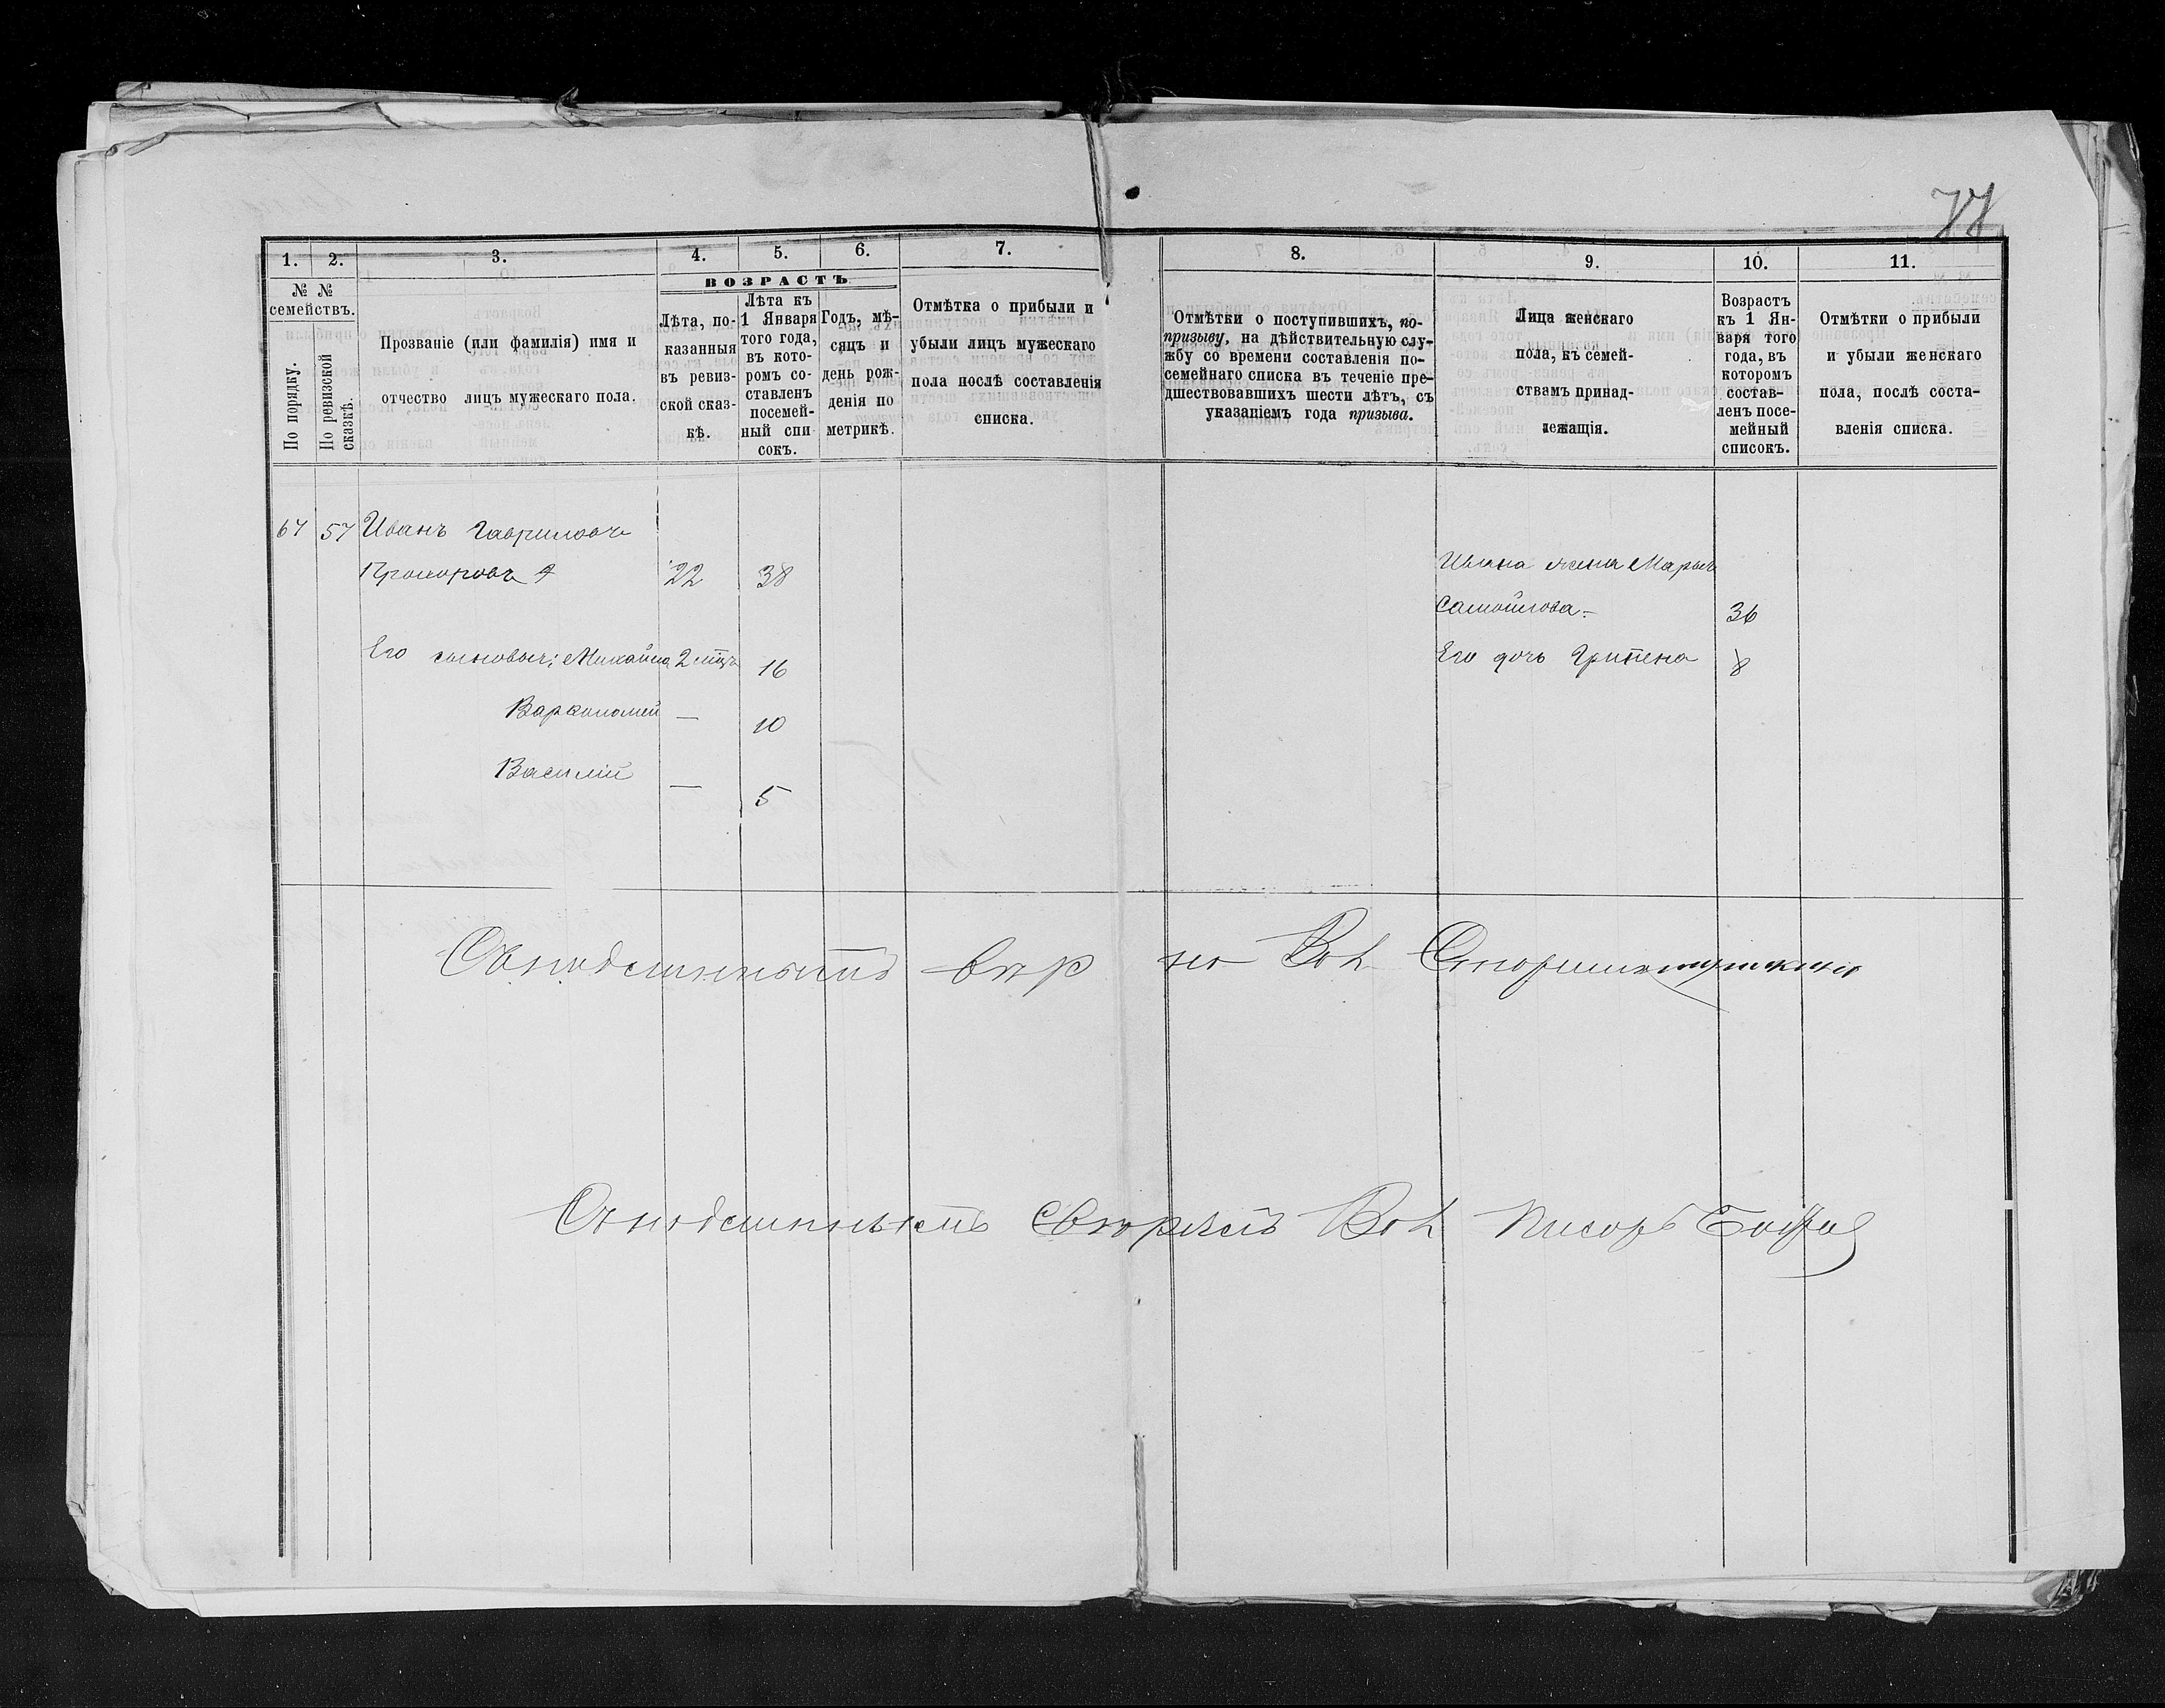 77
1. 2. 3. 4. 5. 6. 7. 8. 9. 10. 11.
№ № семействъ.
По порядку.
По ревизской сказкѣ.
Прозваніе (или фамилія) имя и
отчество лицъ мужескаго пола.
ВОЗРАСТЪ
Лѣта, по-
казанныя
въ ревиз-
ской сказ-
кѣ.
Лѣта къ
1 Января
того года,
въ кото-
ромъ со-
ставленъ
посемей-
ный спи
сокъ.
Годъ, мѣ-
сяцъ и
день рож-
денія по
метрикѣ.
Отмѣтка о прибыли и
убыли лицъ мужескаго
пола послѣ составленія
списка.
Отмѣтки о поступившихъ, по-
призыву, на дѣйствительную слу-
жбу со времени составленія по-
семейнаго списка въ теченіе пре-
дшествовавшихъ шести лѣтъ, съ
указаніемъ года призыва.
Лица женскаго
пола, къ семей-
ствамъ принад-
лежащія.
Возрастъ
къ 1 Ян-
варя того
года, въ
которомъ
состав-
ленъ посе-
мейный
списокъ.
Отмѣтки о прибыли
и убыли женскаго
пола, послѣ соста-
вленія списка.
67 57 Иванъ Гавриловъ
Прохоровъ 22 38
Ивана жена Марья
Самойлова - 36
Его сыновья: Михайла 2 мцъ 16
Его дочь Грипена 8
Варфоломей — 10
Василій — 5
Вол Старшина
Вол писарь